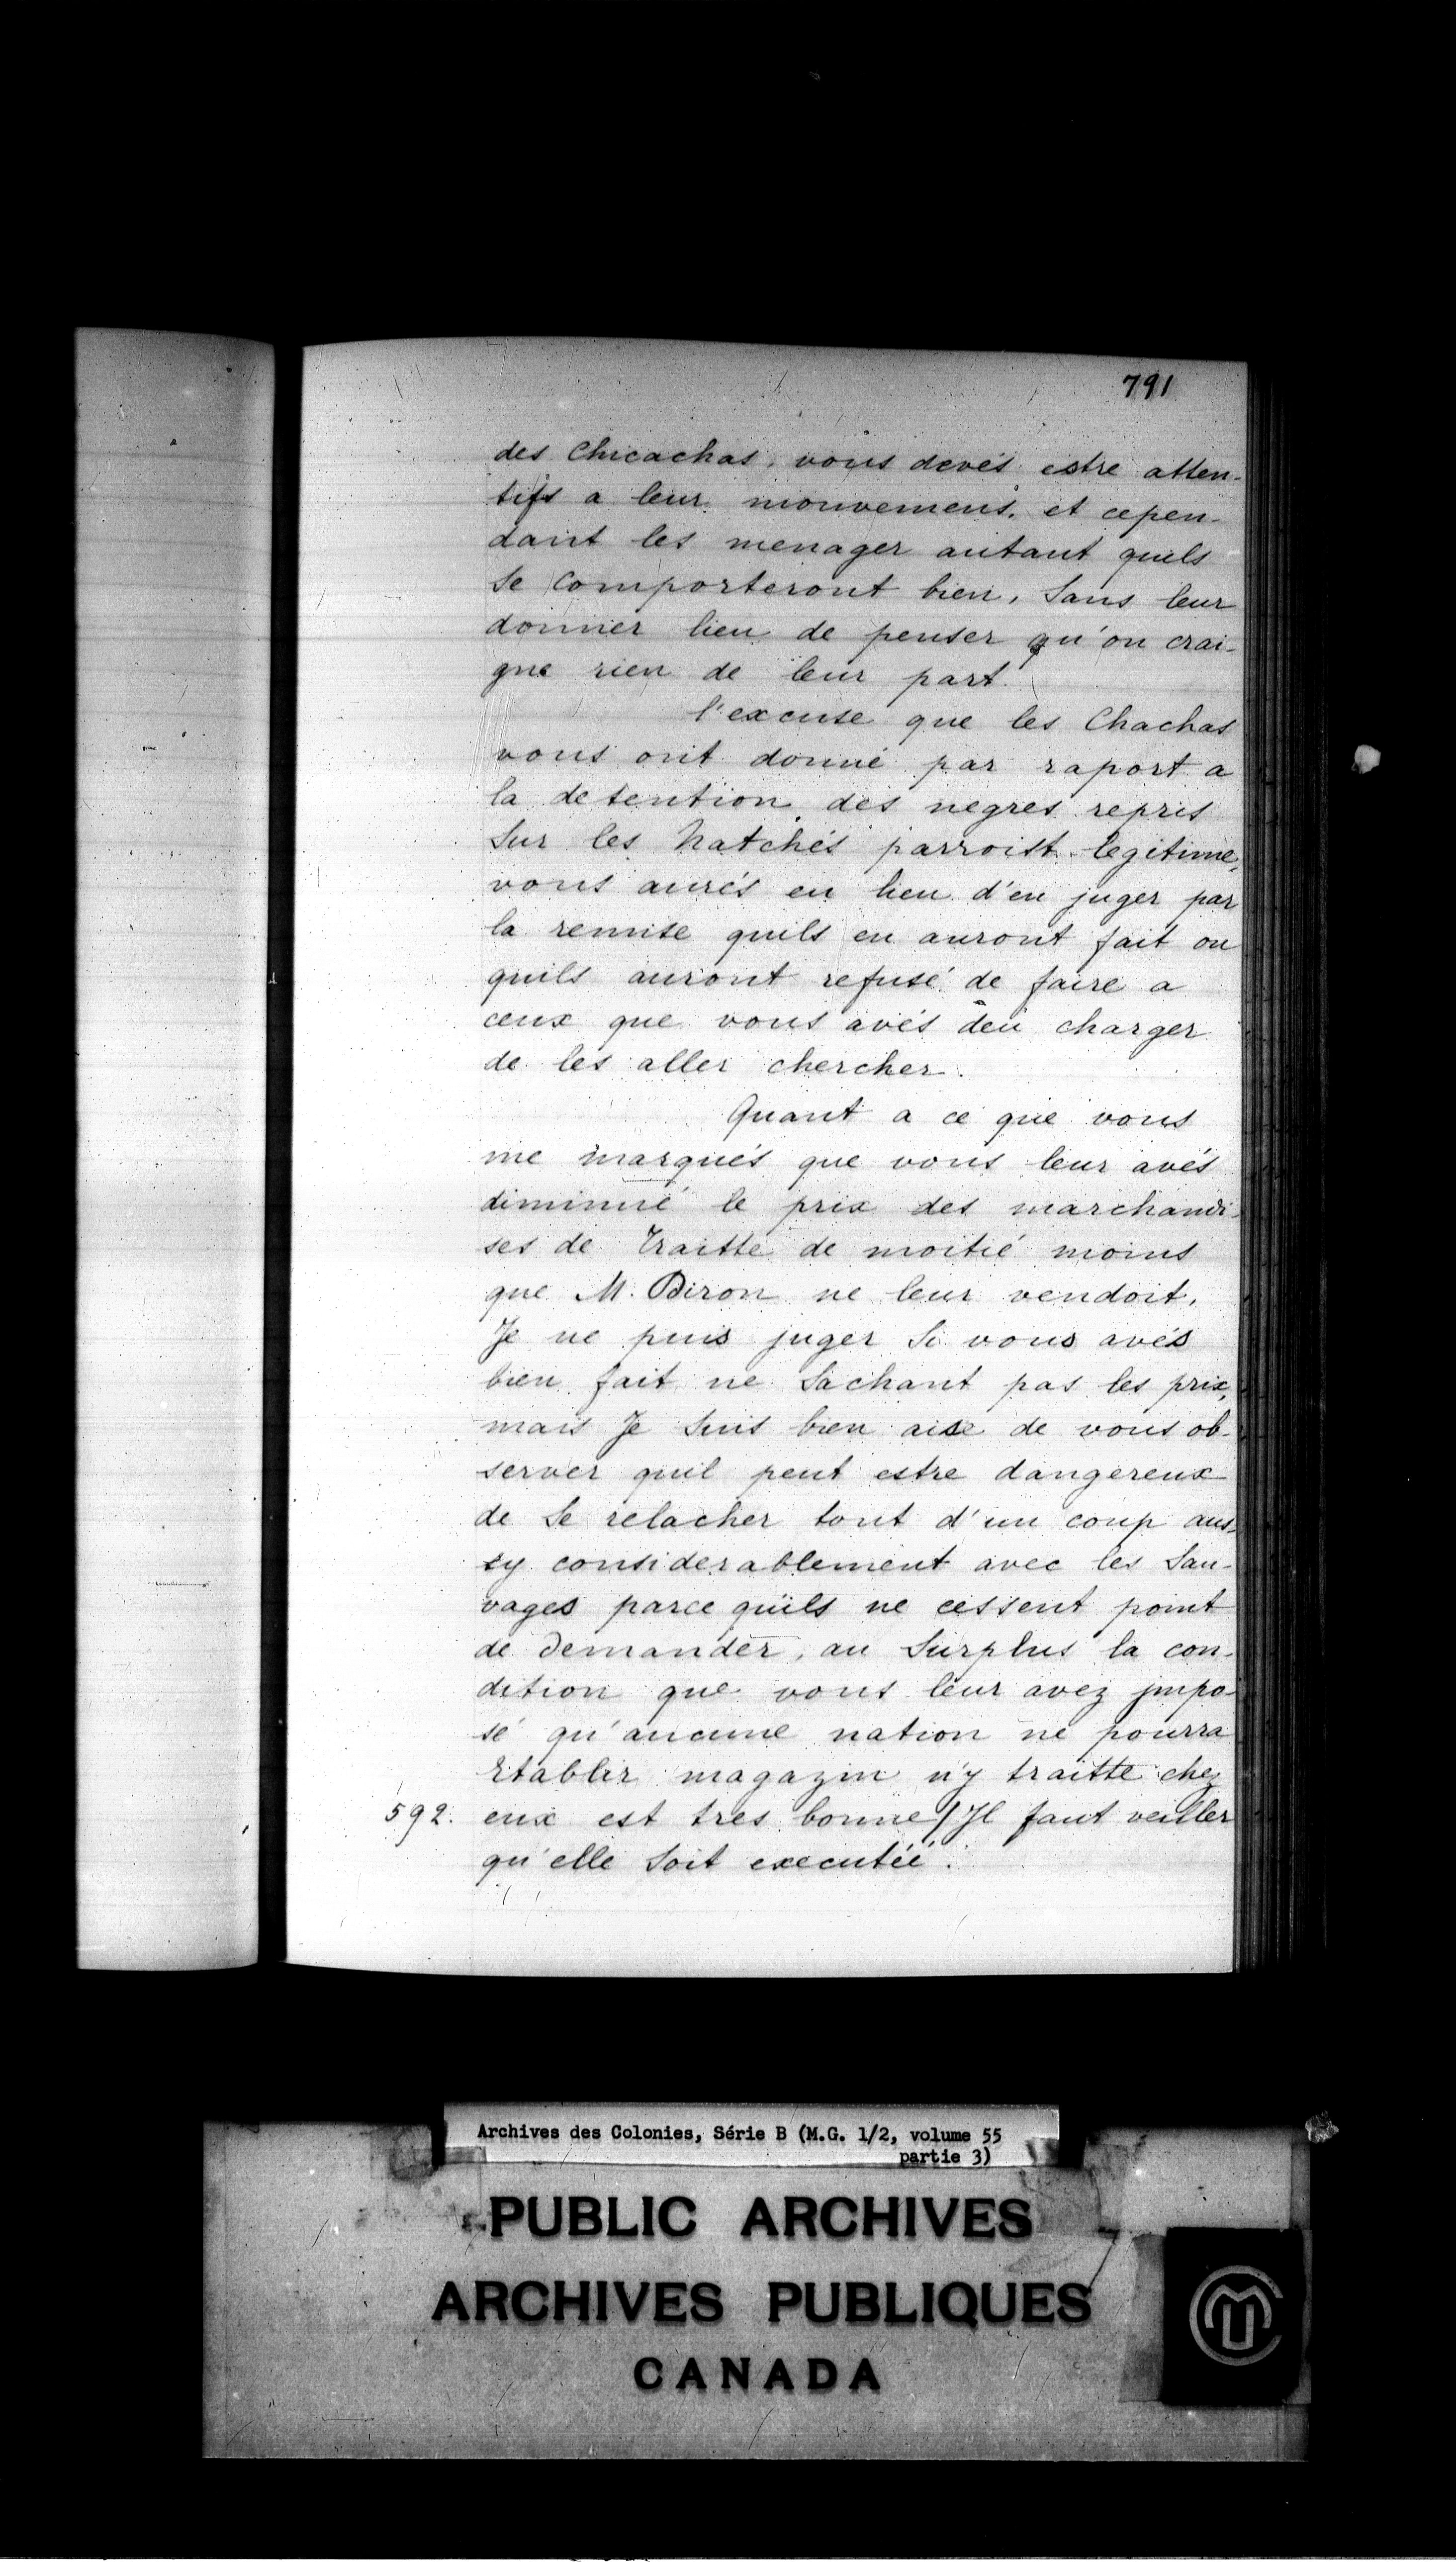 791
des Chicachas, vous devés estre atten-
tifs a leur mouvemens. et cepen-
dant les menager autant quils
se comporteront bien, sans leur
donner lieu de penser qu'on crai-
gne rien de leur part.
l'excuse que les Chachas
vous ont donné par raport a
la detention des negres repris
sur les Natchés parroist legitime,
vous aurés eu lieu d'en juger par
la remise quils en auront fait ou
quils auront refusé de faire a
ceux que vous avés deu charger
de les aller chercher.
Quant a ce que vous
me marqués que vous leur avés
diminué le prix des marchandi-
ses de traitte de moitié moins
que M. Diron ne leur vendoit,
Je ne puis juger si vous avés
bien fait ne sachant pas les prix,
mais Je suis bien aise de vous ob-
server quil peut estre dangereux
de se relacher tout d'un coup aus-
sy considerablement avec les sau-
vages parce quils ne cessent point
de demander, au surplus la con-
dition que vous leur avez jmpo-
sé qu'aucune nation ne pourra
Etablir magazin n'y traitte chez
592. eux est tres bonne / Jl faut veiller
qu'elle soit executéé.
Archives des Colonies, Série B (M.G. 1/2, volume 55
partie 3)
PUBLIC ARCHIVES
ARCHIVES PUBLIQUES
CANADA